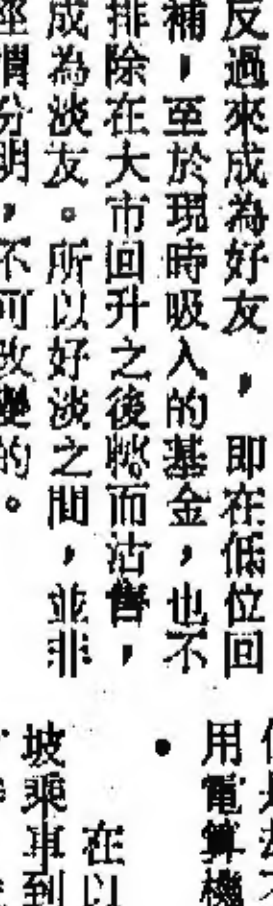 反過來成為好友，即在低位回
補，至於現時吸入的基金，也不
排除在大市回升之後而沽售，
成為淡友。所以好淡之間，並非
涇渭分明，不可改變的。
用電算機
•
在以
坡乘車到